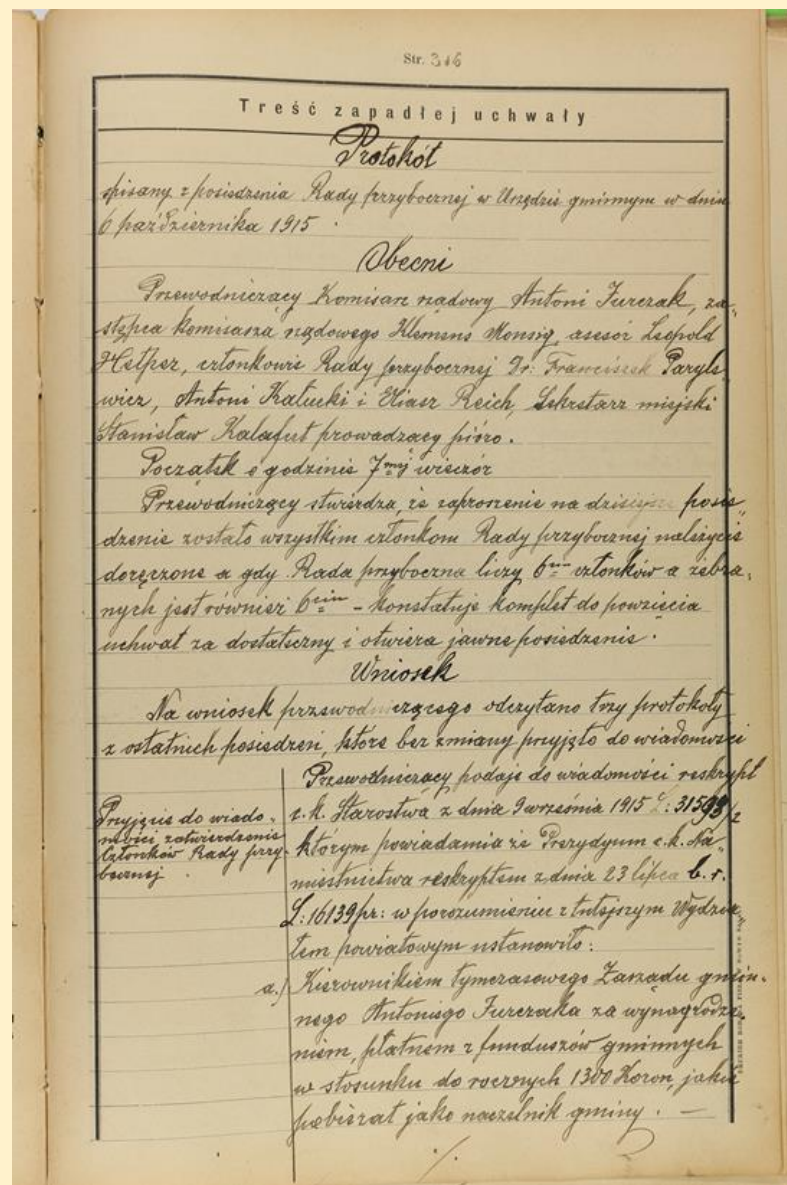 Str. 316
Treść zapadłej uchwały
Protokół
spisany z posiedzenia Rady przybocznej w Urzędzie gminnym w dniu
6 października 1915
Obecni
Przewodniczący Komisarz rządowy Antoni Jurczak, za„
stępca komisarza rządowego Klemens Monsig, asesor Leopold
Hetper, członkowie Rady przybocznej Dr. Franciszek Paryle„
wicz, Antoni Kałucki i Eliasz Reich, Sekretarz miejski
Stanisław Kalafut prowadzący pióro.
Początek o godzinie 7mej wieczór
Przewodniczący stwierdza, że zaproszenie na dzisiejsze posie„
dzenie zostało wszystkim członkom Rady przybocznej należycie
doręczone a gdy Rada przyboczna liczy 6ciu członków a zebra„
nych jest również 6ciu - konstatuje komplet do powzięcia
uchwał za dostateczny i otwiera jawne posiedzenie.
Wniosek
Na wniosek przewodniczącego odczytano trzy protokoły
z ostatnich posiedzeń, które bez zmiany przyjęto do wiadomości
Przyjęcie do wiado„
mości zatwierdzenie
Członków Rady przy„
bocznej.
Przewodniczący podaje do wiadomości reskrypt
c.k. Starostwa z dnia 9 września 1915 L: 31593/2
którym powiadamia że Prezydyum c.k. Na„
miestnictwa reskryptem z dnia 23 lipca b.r.
L: 16139/pr: w porozumieniu z tutejszym Wydzia„
łem powiatowym ustanowiło:
a./ Kierownikiem tymczasowego Zarządu gmin„
nego Antoniego Jurczaka za wynagrodze„
niem, płatnem z funduszów gminnych
w stosunku do rocznych 1300 Koron, jakie
pobierał jako naczelnik gminy. —
./.